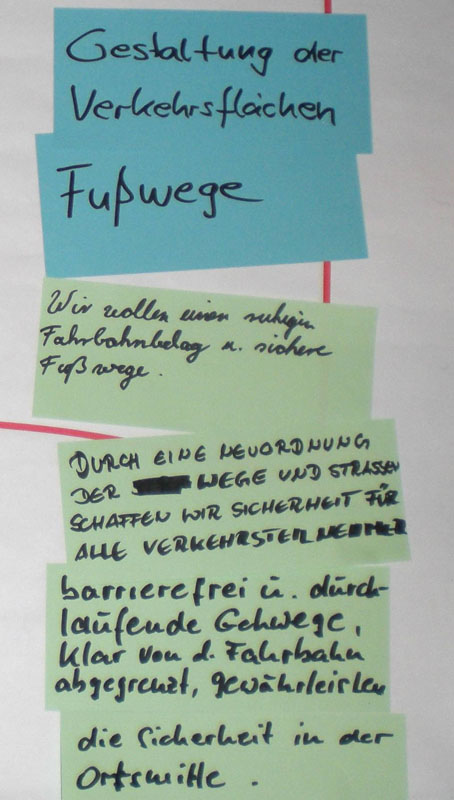 Gestaltung der
Verkehrsflächen
Fußwege
Wir wollen einen ruhigen
Fahrbahnbelag u. sichere
Fußwege.
DURCH EINE NEUORDNUNG
DER WEGE UND STRASSEN
SCHAFFEN WIR SICHERHEIT FÜR
ALLE VERKEHRSTEILNEHMER
barrierefrei u. durch-
laufende Gehwege,
klar von d. Fahrbahn
abgegrenzt, gewährleisten
die Sicherheit in der
Ortsmitte.